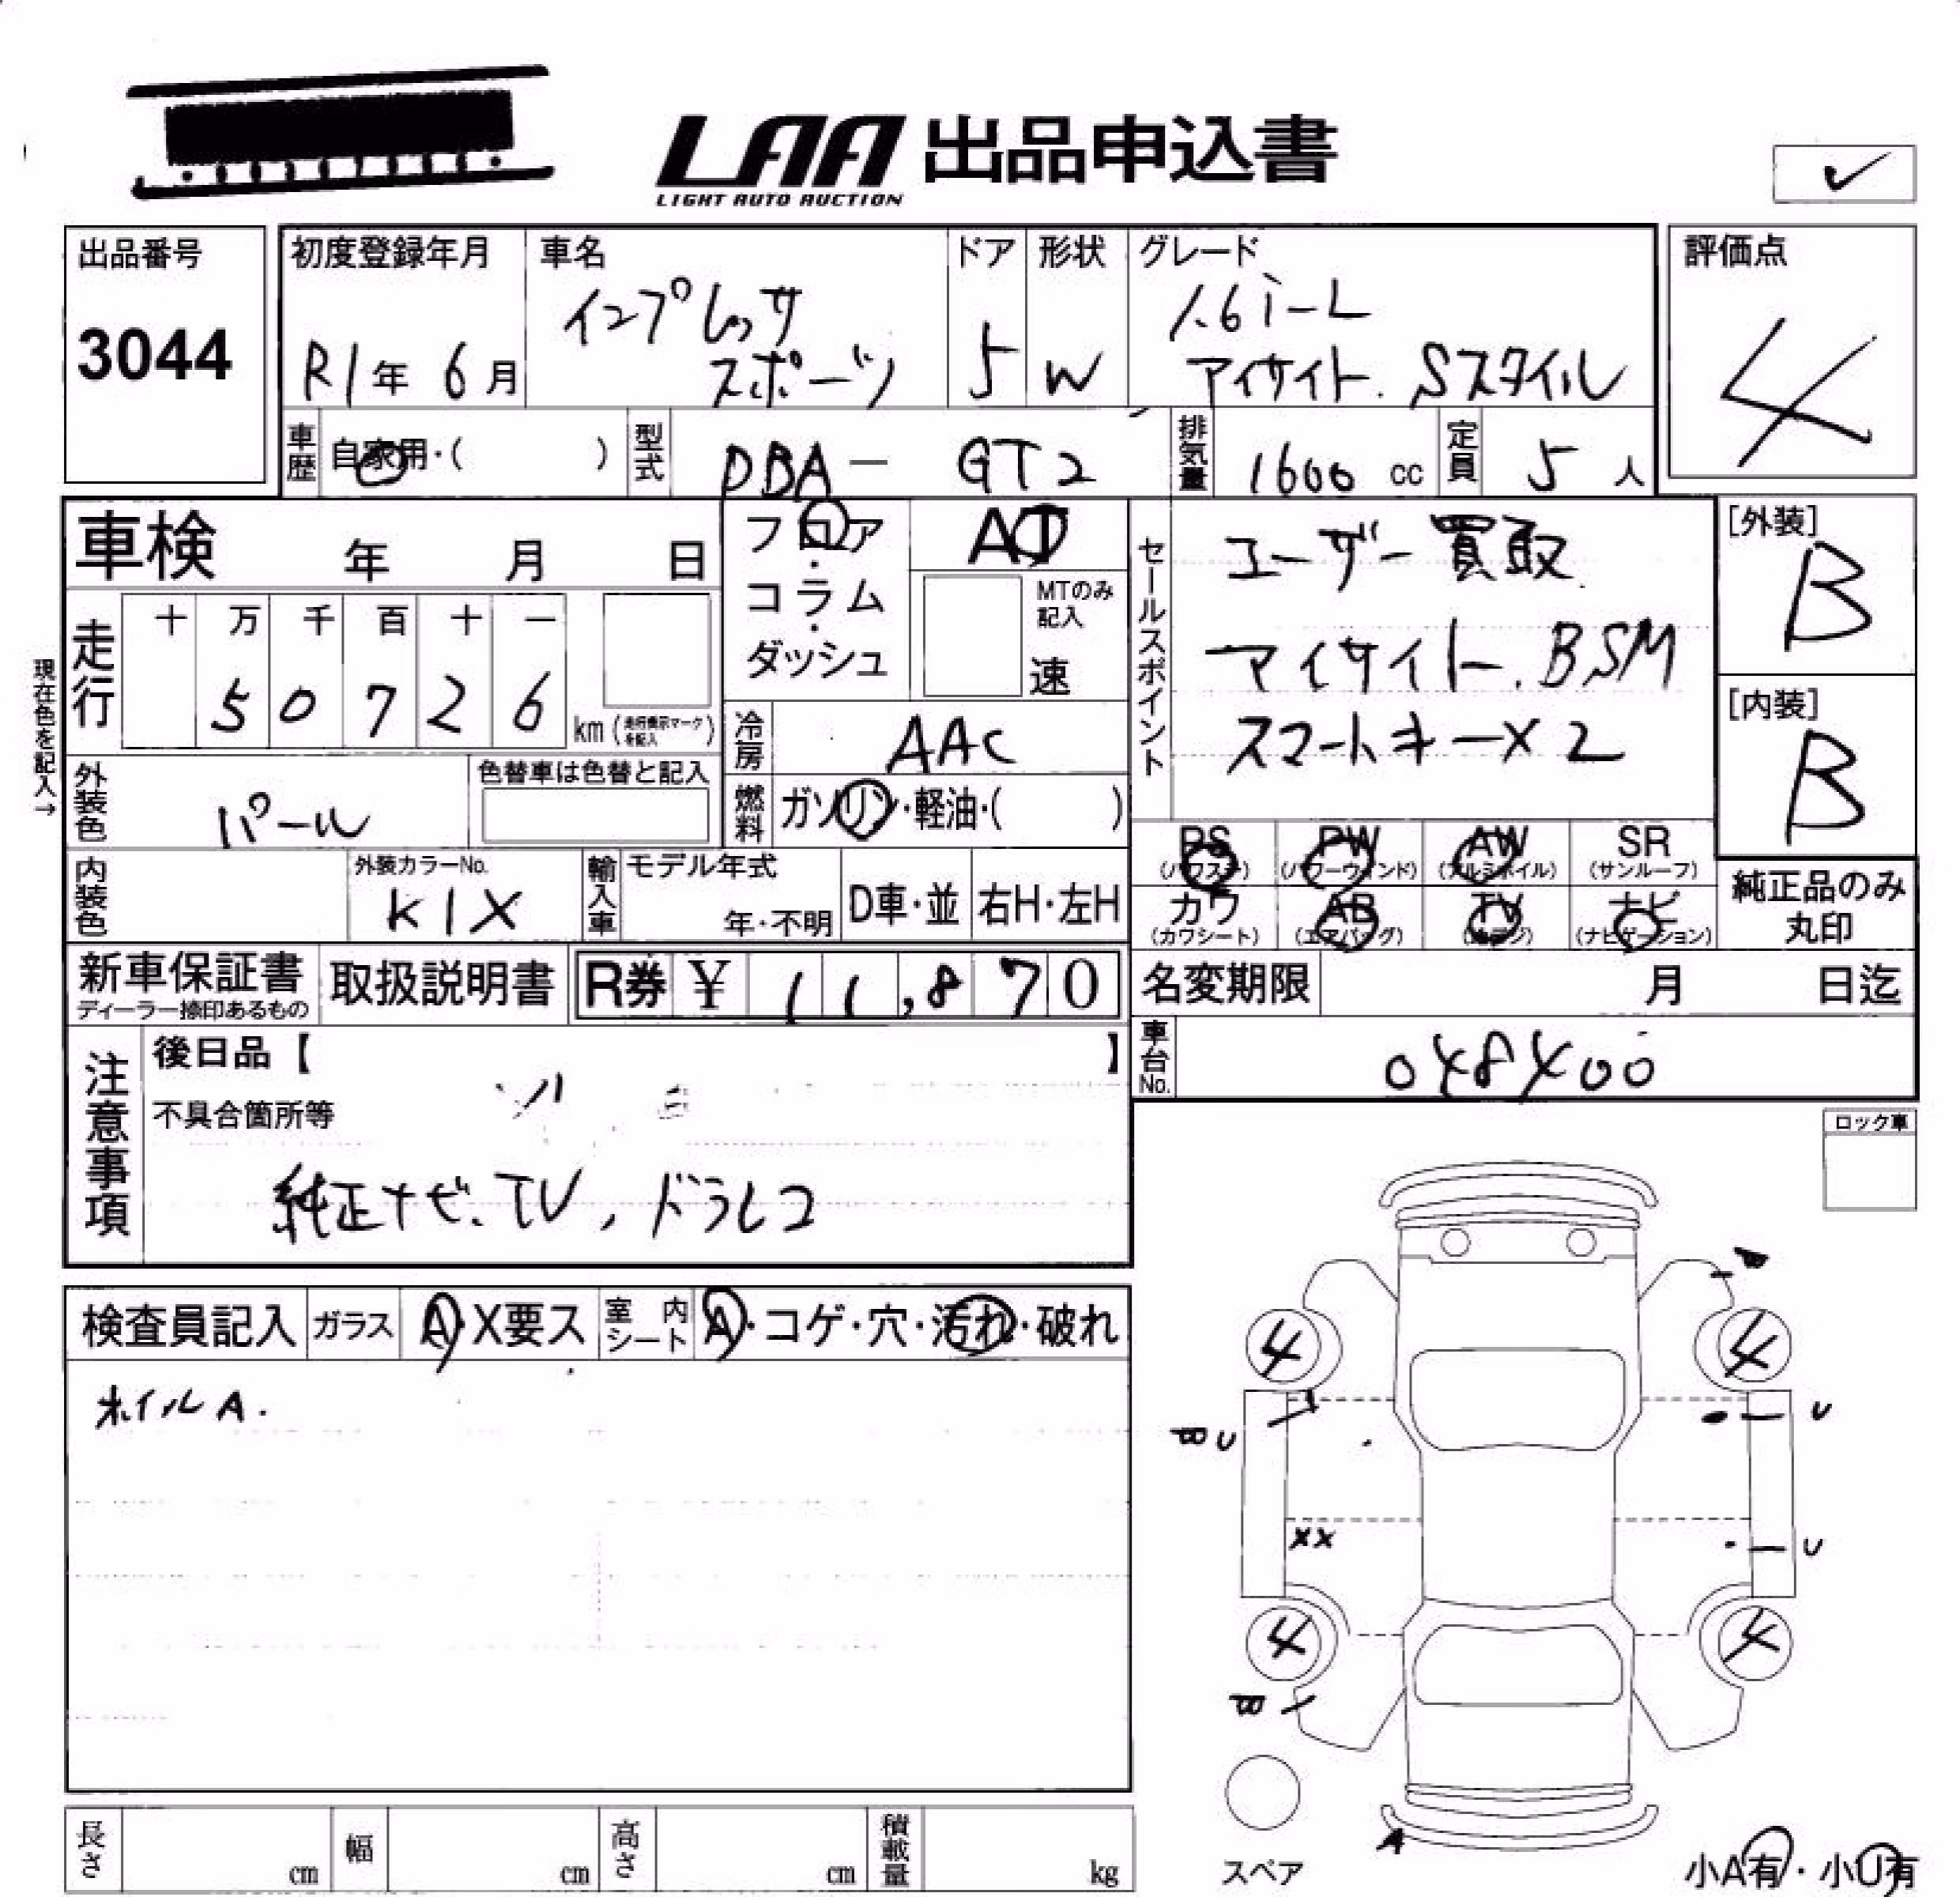 LAA 出品申込書
LIGHT AUTO AUCTION
✓
出品番号
3044
初度登録年月
R1年 6月
車名
インプレッサ
スポーツ
ドア
5
形状
W
グレード
1.6i-L
アイサイト.Sスタイル
評価点
4
車歴
自家用・( )
型式
DBA - GT2
排気量
1600 cc
定員
5 人
車検 年 月 日
フロア・コラム・ダッシュ
AT
MTのみ記入
速
セールスポイント
ユーザー買取
アイサイト.BSM
スマートキー×2
[外装]
B
[内装]
B
現在色を記入→
走行
十 万 千 百 十 一
5 0 7 2 6 km (走行表示マークを記入)
冷房
AAC
外装色
パール
色替車は色替と記入
燃料
ガソリン・軽油・( )
PS (パワステ)
PW (パワーウィンド)
AW (アルミホイル)
SR (サンルーフ)
カワ (カワシート)
AB (エアバッグ)
TV
ナビ (ナビゲーション)
純正品のみ丸印
内装色
外装カラーNo.
K1X
輸入車
モデル年式
年・不明
D車・並
右H・左H
新車保証書
ディーラー捺印あるもの
取扱説明書
R券 ¥ 11,870
名変期限 月 日迄
車台No.
048400
注意事項
後日品【 】
不具合箇所等
純正ナビ、TV、ドラレコ
ロック車
検査員記入
ガラス
A・X要ス
室内シート
A・コゲ・穴・汚れ・破れ
ホイルA.
4
4
U
B U
XX
U
4
4
B
A
スペア
長さ cm
幅 cm
高さ cm
積載量 kg
小A有・小U有